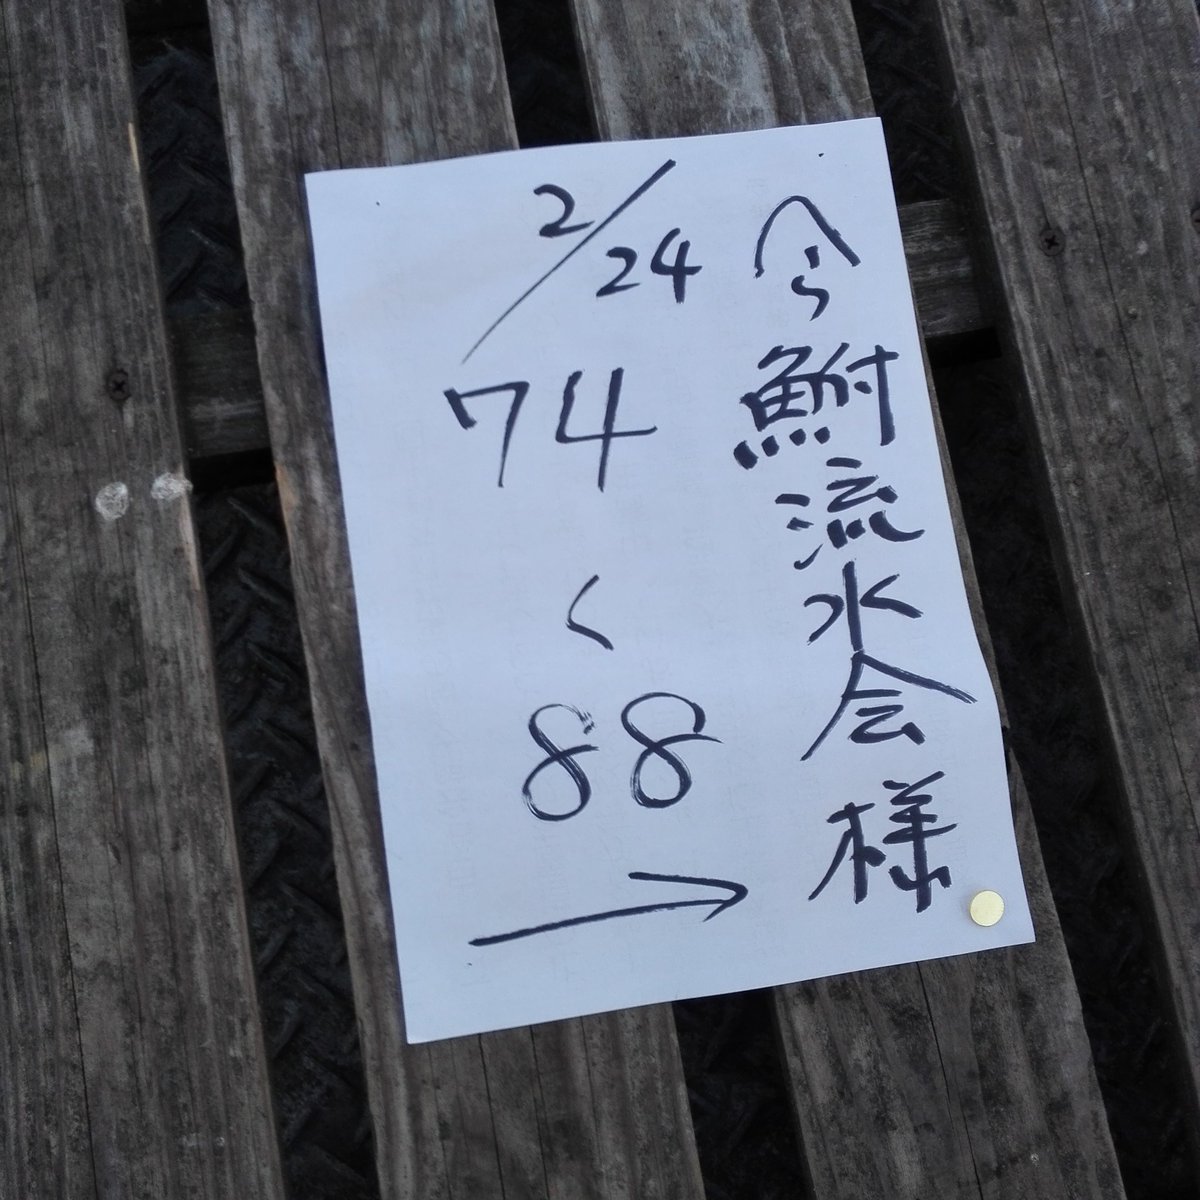 令鮒流水会様
2/24
74
〜
88
→